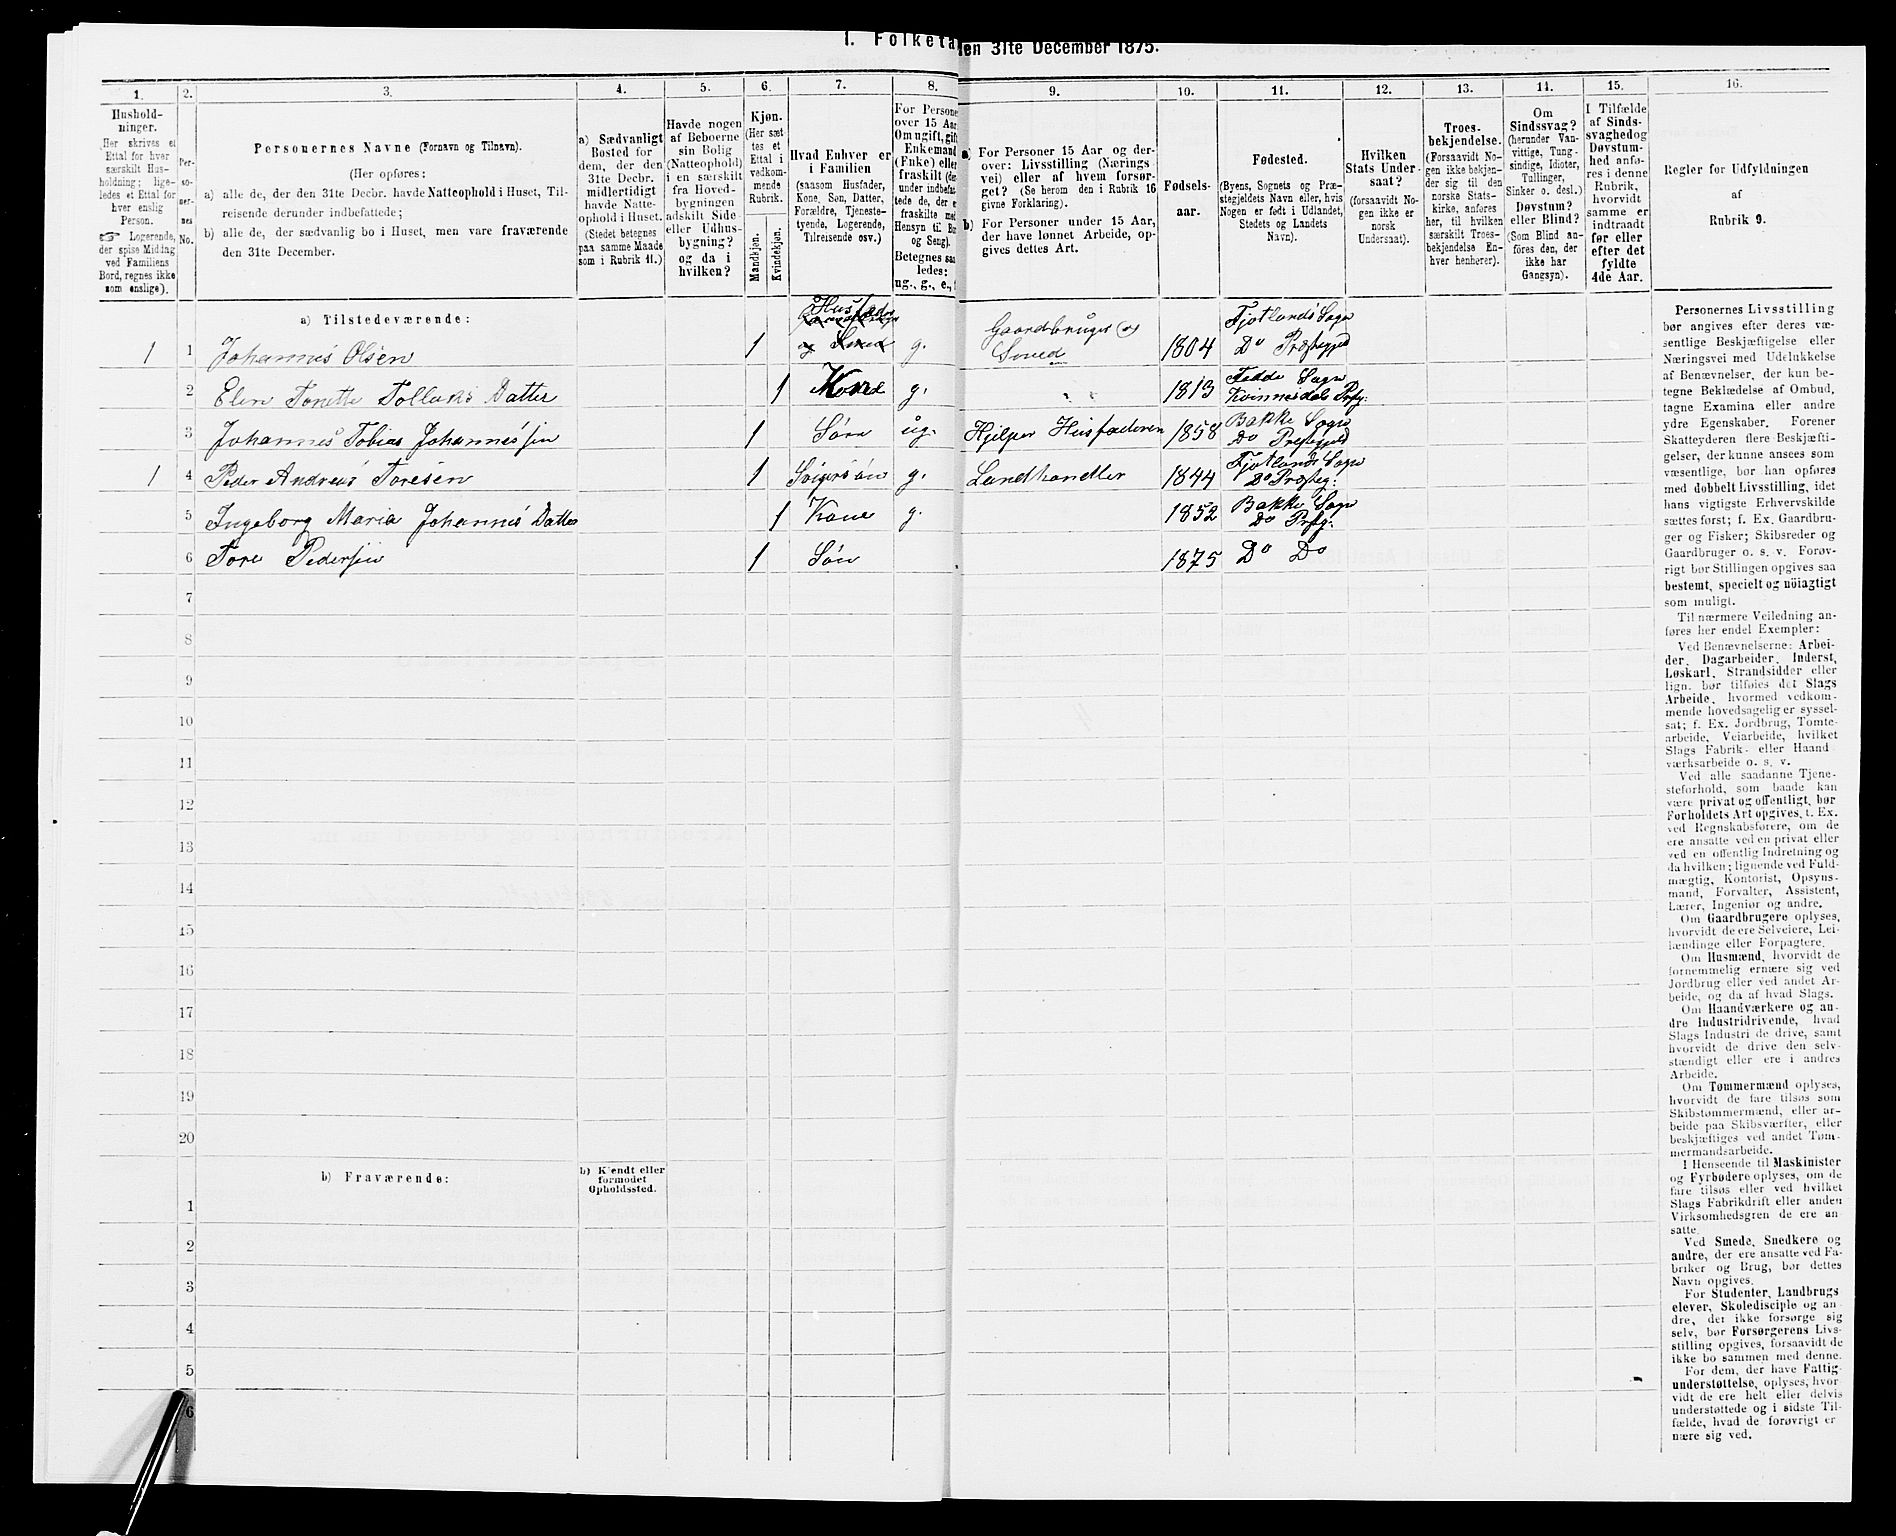 I. Folketa
en 31te December 1875.
1.
2.
3.
4.
5.
6.
7.
8.
9.
10.
11.
12.
13.
14.
15.
16.
Hushold-
ninger.
(Her skrives et
Ettal for hver
særskilt Hus-
holdning; lige-
ledes et Ettal for
hver enslig
Person.
☞ Logerende,
der spise Middag
ved Familiens
Bord, regnes ikke
som enslige).
Per-
so-
ner-
nes
No.
Personernes Navne (Fornavn og Tilnavn).
(Her opføres:
a) alle de, der den 31te Decbr. havde Natteophold i Huset, Til-
reisende derunder indbefattede;
b) alle de, der sædvanlig bo i Huset, men vare fraværende
den 31te December.
a) Sædvanligt
Bosted for
dem, der den
31te Decbr.
midlertidigt
havde Natte-
ophold i Huset.
(Stedet betegnes
paa samme Maade
som i Rubrik 11.)
Havde nogen
af Beboerne
sin Bolig
(Natteophold)
i en særskilt
fra Hoved-
bygningen
adskilt Side-
eller Udhus-
bygning?
og da i
hvilken?
Kjøn.
(Her sæt-
tes et
Ettal i
vedkom-
mende
Rubrik.
Mandkjøn.
Kvindekjøn.
Hvad Enhver er
i Familien
(saasom Husfader,
Kone, Søn, Datter,
Forældre, Tjeneste-
tyende, Logerende,
Tilreisende osv.)
For Persone
over 15 Aar
Om ugift, gift
Enkemand
(Enke) eller
fraskilt (der-
under indbefat-
tede de, der e
fraskilte med
Hensyn til Bo
og Seng).
Betegnes saa
ledes:
ug., g., e.,
a) For Personer 15 Aar og der-
over: Livsstilling (Nærings-
vei) eller af hvem forsør-
get? (Se herom den i Rubrik 16
givne Forklaring).
b) For Personer under 15 Aar,
der have lønnet Arbeide, op-
gives dettes Art.
Fødsels-
aar.
Fødested.
(Byens, Sognets og Præ-
stegjeldets Navn eller, hvis
Nogen er født i Udlandet,
Stedets og Landets
Navn).
Hvilken
Stats Under-
saat?
(forsaavidt No-
gen ikke er
norsk
Undersaat).
Troes-
bekjendelse.
(Forsaavidt No-
gen ikke bekjen-
der sig til den
norske Stats-
kirke, anføres
her, til hvilken
særskilt Troes-
bekjendelse En-
hver henhører).
Om
Sindssvag?
(herunder Van-
vittige, Tung-
sindige, Idioter,
Tullinger,
Sinker o. desl.)
Døvstum?
eller Blind?
(Som Blind an-
føres den, der
ikke har
Gangsyn).
I Tilfælde
af Sinds-
svaghed og
Døvstum-
hed anfø-
res i denne
Rubrik,
hvorvidt
samme er
indtraadt
før eller
efter det
fyldte
4de Aar.
Regler for Udfyldningen
af
Rubrik 9.
a) Tilstedeværende:
1 1 Johannes Olsen 1 Husfader og Smed g. Gaardbruger og Smed 1804 Fjotlands Sogn Do Præstegjeld
2 Elen Tonette Tollaks Datter 1 Kone g. 1813 Fedde Sogn Kvinnesdals Prfg:
3 Johannes Tobias Johannessen 1 Søn ug. Hjelper Husfaderen 1858 Bakke Sogn Do Prestegjeld
1 4 Peder Andreas Toresen 1 Svigersøn g. Landhandler 1844 Fjotlands Sogn Do Præsteg:
5 Ingeborg Maria Johannes Datter 1 Kone g. 1852 Bakke Sogn Do Prfg:
6 Tore Pedersen 1 Søn 1875 Do Do
7
8
9
10
11
12
13
14
15
16
17
18
19
20
b) Fraværende:
b) Kjendt eller
formodet
Opholdssted.
1
2
3
4
5
6
Personernes Livsstilling
bør angives efter deres væ-
sentlige Beskjæftigelse eller
Næringsvei med Udelukkelse
af Benævnelser, der kun be-
tegne Beklædelse af Ombud,
tagne Examina eller andre
ydre Egenskaber. Forener
Skatteyderen flere Beskjæfti-
gelser, der kunne ansees som
væsentlige, bør han opføres
med dobbelt Livsstilling, idet
hans vigtigste Erhvervskilde
sættes først; f. Ex. Gaardbru-
ger og Fisker; Skibsreder og
Gaardbruger o. s. v. Forøv-
rigt bør Stillingen opgives saa
bestemt, specielt og nøiagtigt
som muligt.
Til nærmere Veiledning an-
føres her endel Exempler:
Ved Benævnelserne: Arbei-
der, Dagarbeider, Inderst,
Løskarl, Strandsidder eller
lign. bør tilføies det Slags
Arbeide, hvormed vedkom-
mende hovedsagelig er syssel-
sat; f. Ex. Jordbrug, Tomte-
arbeide, Veiarbeide, hvilket
Slags Fabrik- eller Haand-
værksarbeide o. s. v.
Ved alle saadanne Tjene-
steforhold, som baade kan
være privat og offentligt, bør
Forholdets Art opgives, f. Ex.
ved Regnskabsførere, om de
ere ansatte ved en privat eller
ved en offentlig Indretning og
da hvilken; lignende ved Fuld-
mægtig, Kontorist, Opsyns-
mand, Forvalter, Assistent,
Lærer, Ingeniør og andre.
Om Gaardbrugere oplyses,
hvorvidt de ere Selveiere, Lei-
lændinge eller Forpagtere.
Om Husmænd, hvorvidt de
fornemmelig ernære sig ved
Jordbrug eller ved andet Ar-
beide, og da af hvad Slags.
Om Haandværkere og an-
dre Industridrivende, hvad
Slags Industri de drive, samt
hvorvidt de drive den selv-
stændigt eller ere i andres
Arbeide.
Om Tømmermænd oplyses,
hvorvidt de fare tilsøs som
Skibstømmermænd, eller ar-
beide paa Skibsværfter, eller
beskjæftiges ved andet Tøm-
mermandsarbeide.
I Henseende til Maskinister
og Fyrbødere oplyses, om de
fare tilsøs eller ved hvilket
Slags Fabrikdrift eller anden
Virksomhedsgren de ere an-
satte.
Ved Smede, Snedkere og
andre, der ere ansatte ved Fa-
briker og Brug, bør dettes
Navn opgives.
For Studenter, Landbrugs-
elever, Skoledisciple og an-
dre, der ikke forsørge sig
selv, bør Forsørgerens Livs-
stilling opgives, forsaavidt de
ikke bo sammen med denne.
For dem, der have Fattig-
understøttelse, oplyses, hvor-
vidt de ere helt eller delvis
understøttede og i sidste Til-
fælde, hvad de forøvrigt er-
nære sig ved.